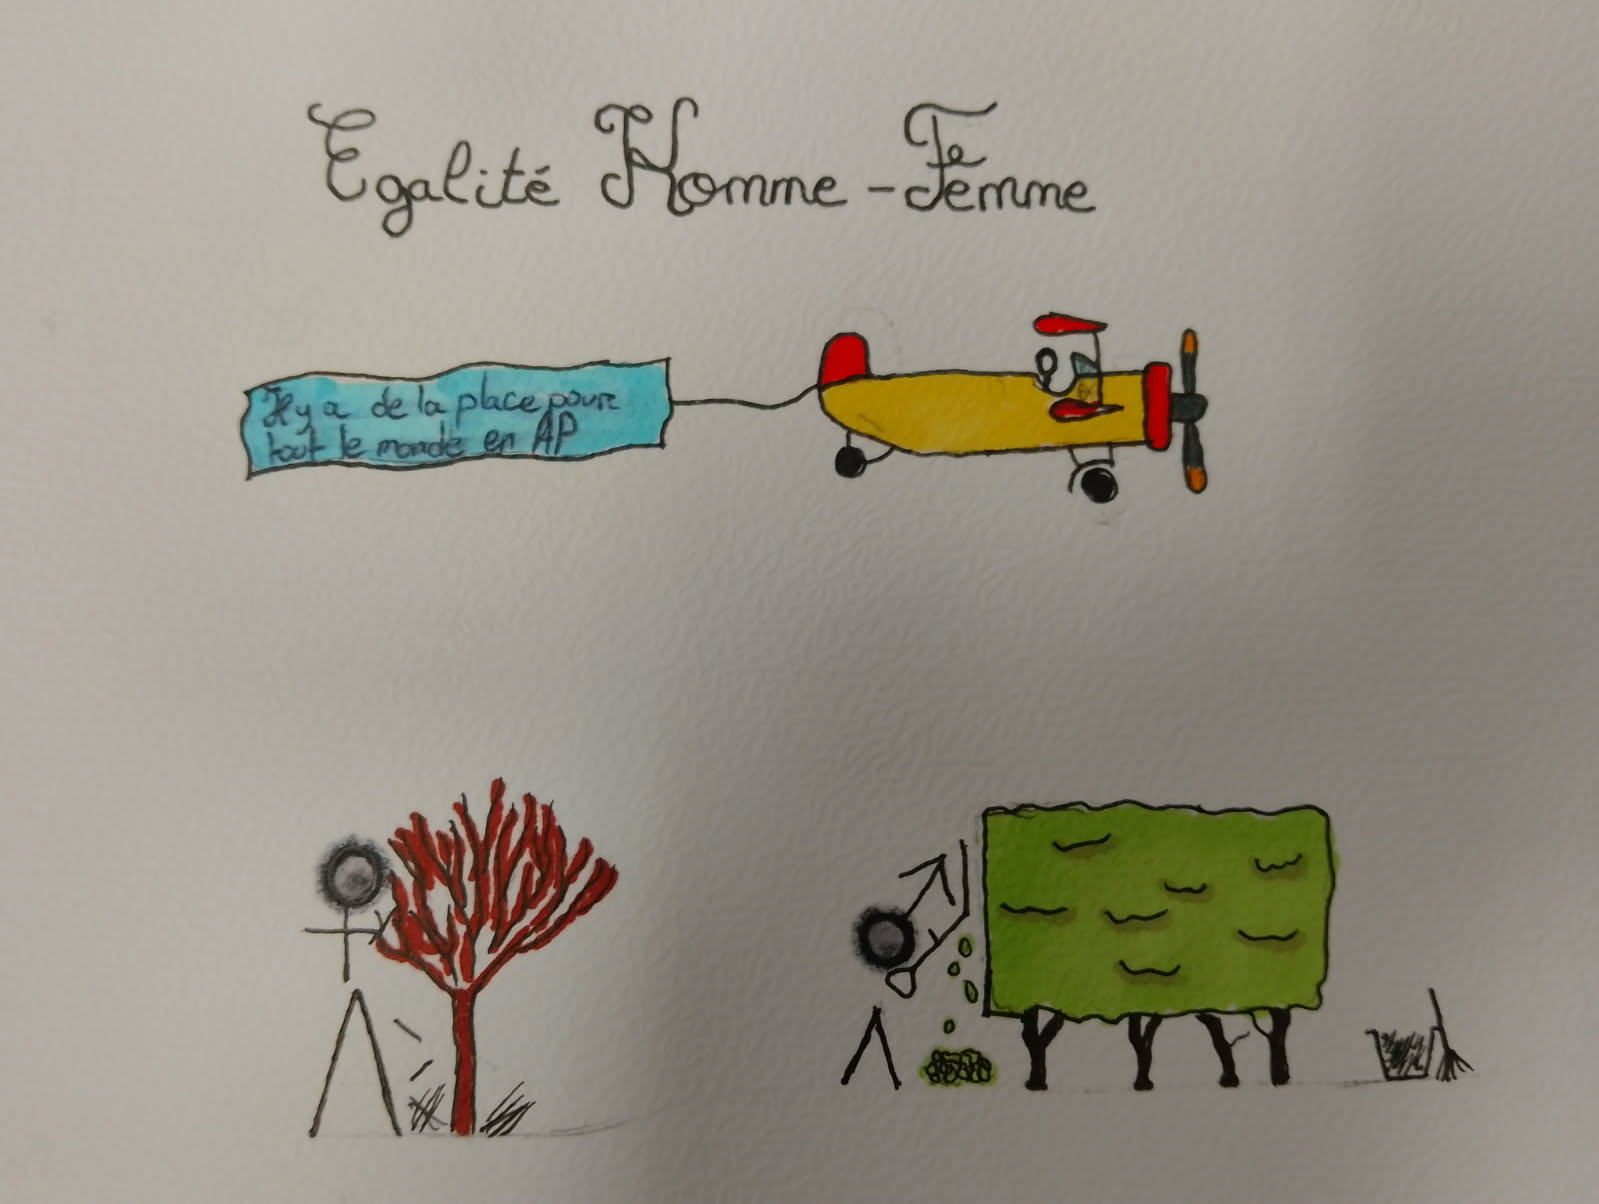 Egalité Homme-Femme
Il y a de la place pour
tout le monde en AP